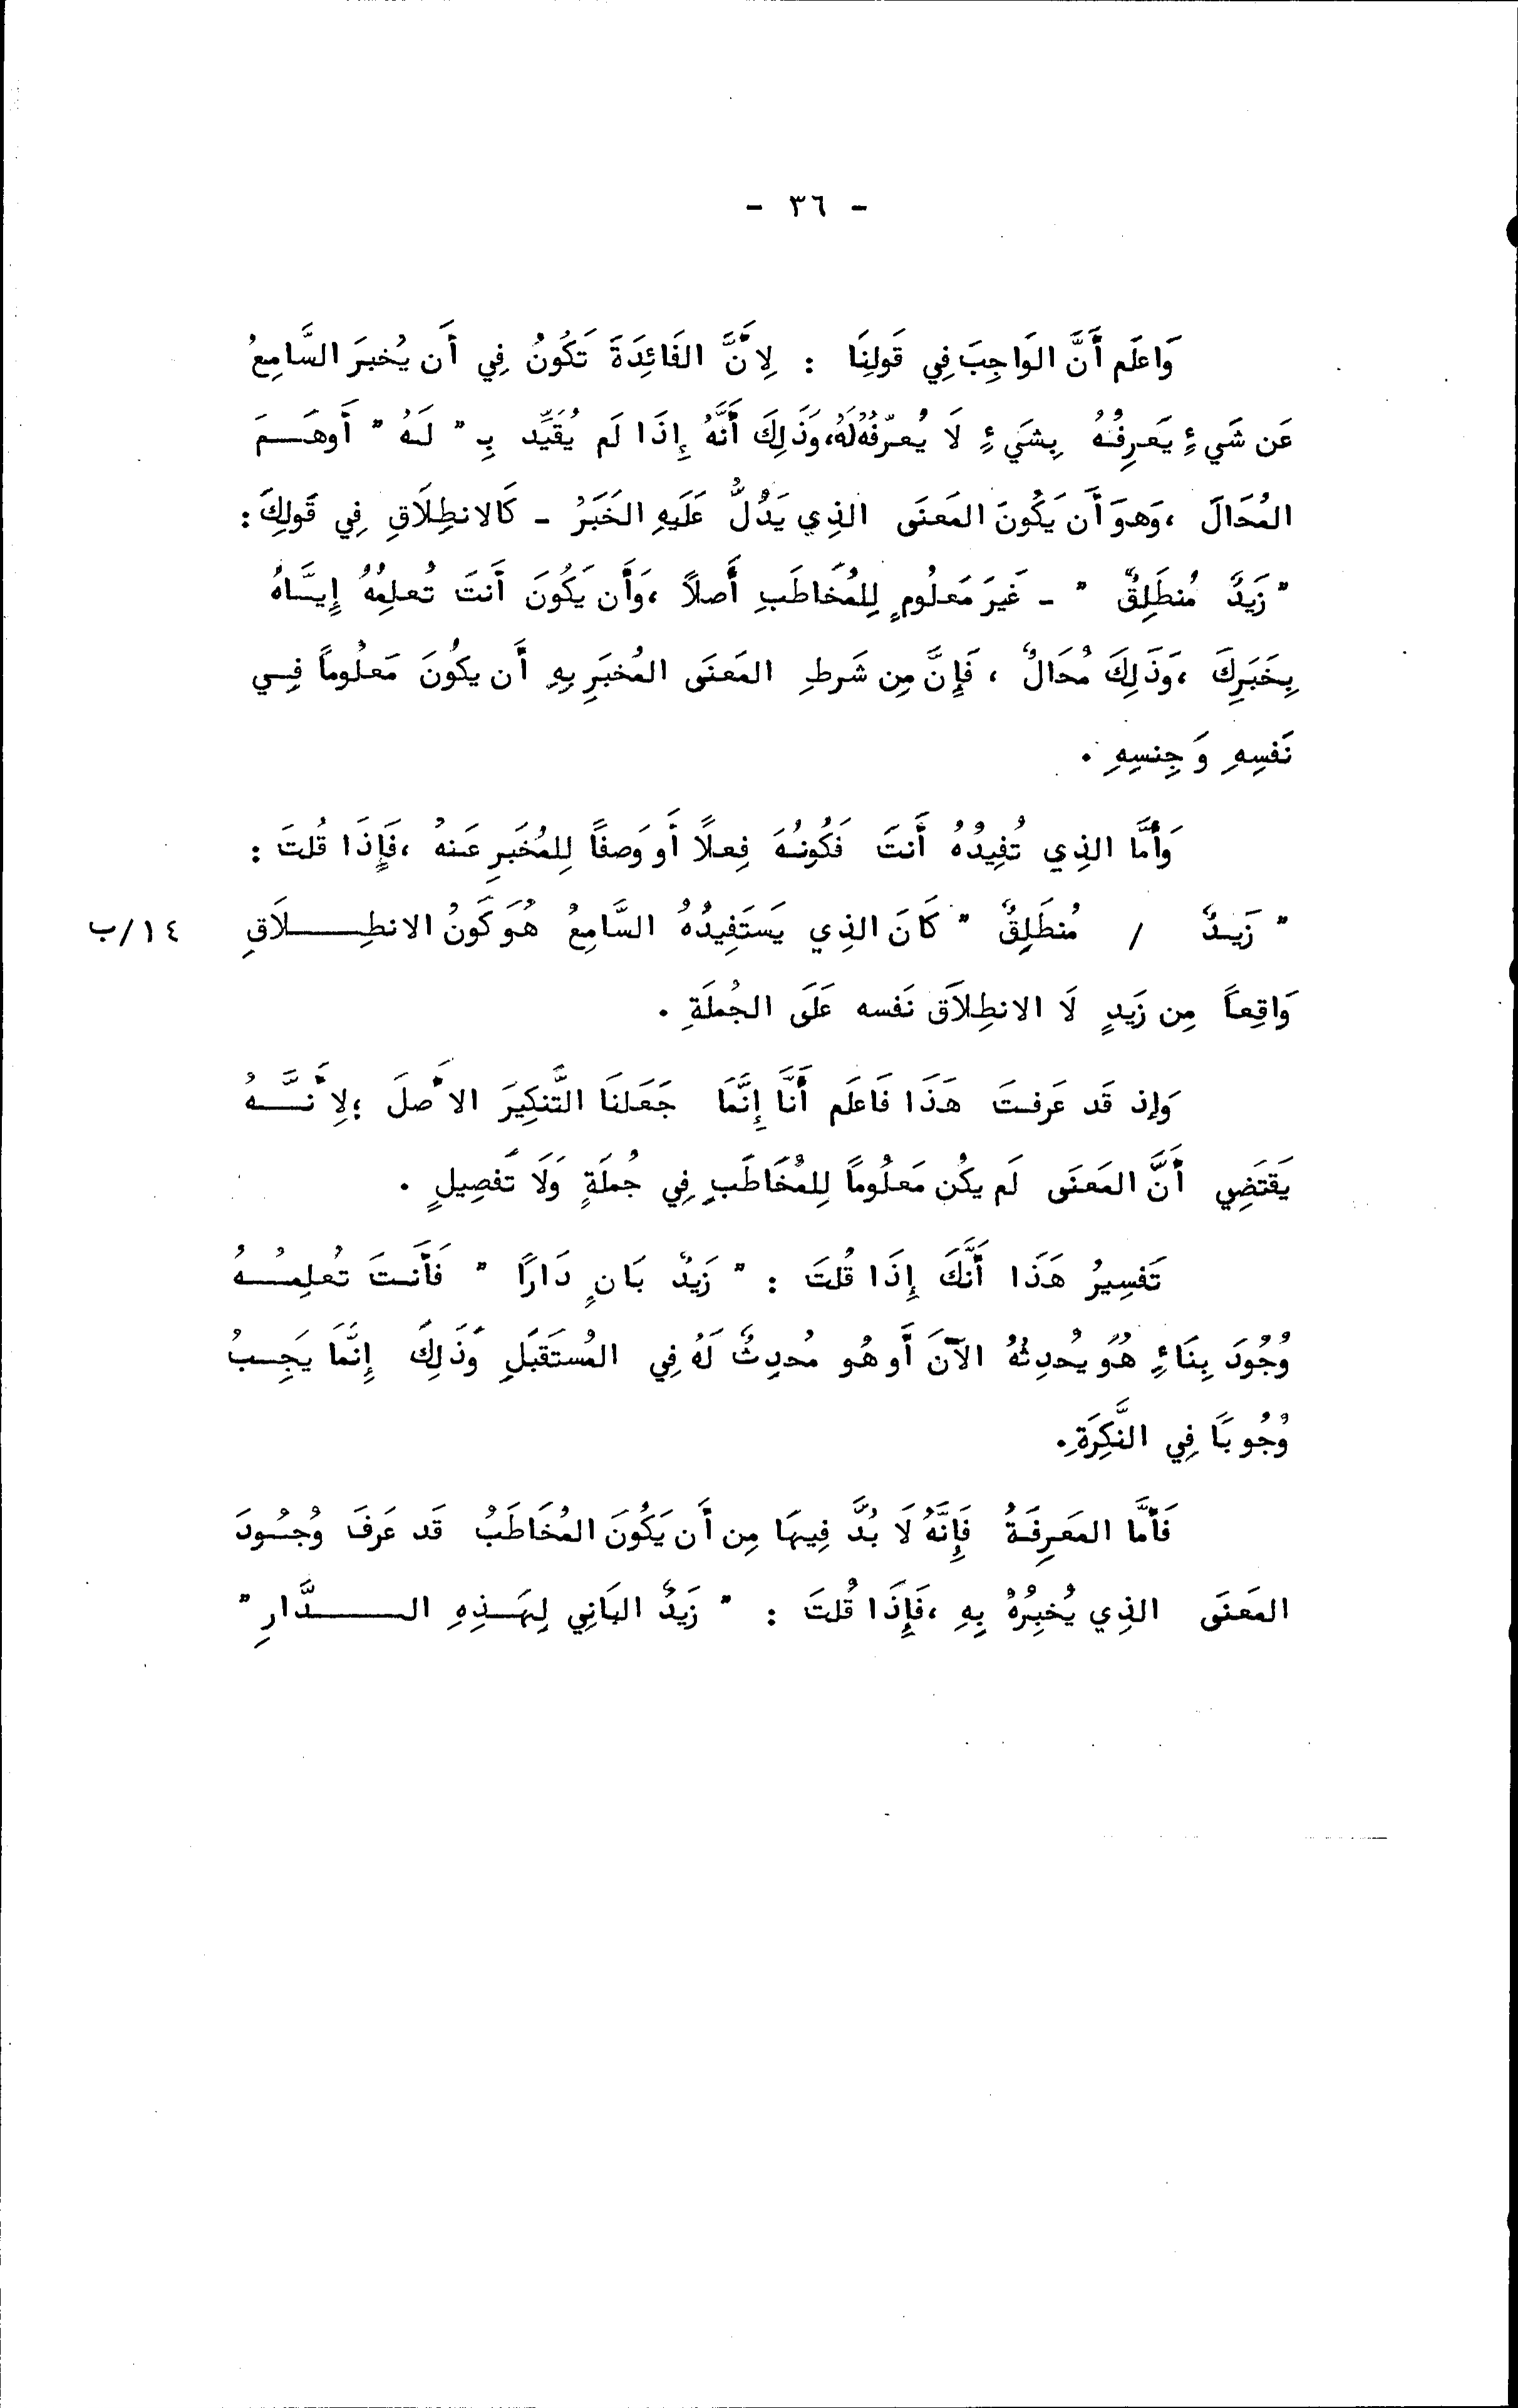 - ٣٦ -
وَاعلَم أَنَّ الوَاجِبَ فِي قَولِنَا : لِأَنَّ الفَائِدَةَ تَكُونُ فِي أَن يُخبرَ السَّامِعُ
عَن شَيءٍ يَعرِفُهُ بِشَيءٍ لَا يُعرّفُهُ لَهُ، وَذَلِكَ أَنَّهُ إِذَا لَم يُقَيِّد بِـ " لَهُ " أَوهَــمَ
المُحَالَ ، وَهوَ أَن يَكُونَ المَعنَى الذِي يَدُلُّ عَلَيهِ الخَبَرُ - كَالانطِلَاقِ فِي قَولِكَ :
" زَيدٌ مُنطَلِقٌ " - غَيرَ مَعلُومٍ لِلمُخَاطَبِ أَصلاً ، وَأَن يَكُونَ أَنتَ تُعلِمُهُ إِيَّاهُ
بِخَبَرِكَ ، وَذَلِكَ مُحَالٌ ، فَإِنَّ مِن شَرطِ المَعنَى المُخبَرِ بِهِ أَن يكُونَ مَعلُوماً فِـي
نَفسِهِ وَجِنسِهِ .
وَأَمَّا الذِي تُفِيدُهُ أَنتَ فَكُونُهَ فِعلًا أَو وَصفًا لِلمُخبَرِ عَنهُ ، فَإِذَا قُلتَ :
" زَيدٌ / مُنطَلِقٌ " كَانَ الذِي يَستَفِيدُهُ السَّامِعُ هُوَ كَونُ الانطِــــلَاقِ ١٤/ب
وَاقِعاً مِن زَيدٍ لَا الانطِلاَقَ نَفسه عَلَى الجُملَةِ .
وَإِذ قَد عَرفتَ هَذَا فَاعلَم أَنَّا إِنَّمَا جَعَلنَا التَّنكِيرَ الأَصلَ ؛ لِأَنَّـــهُ
يَقتَضِي أَنَّ المَعنَى لَم يكُن مَعلُومًا لِلمُخَاطَبِ فِي جُملَةٍ وَلَا تَفصِيلٍ .
تَفسِيرُ هَذَا أَنَّكَ إِذَا قُلتَ : " زَيدٌ بَانٍ دَارًا " فَأَنتَ تُعلِمُـــهُ
وُجُودَ بِنَاءٍ هُوَ يُحدِثُهُ الآنَ أَو هُو مُحدِثٌ لَهُ فِي المُستَقبَلِ وَذَلِكَ إِنَّمَا يَجِــبُ
وُجُوبًا فِي النَّكِرَةِ.
فَأَمَّا المَعرِفَةُ فَإِنَّهُ لَا بُدَّ فِيهَا مِن أَن يَكُونَ المُخَاطَبُ قَد عَرَفَ وُجُــودَ
المَعنَى الذِي يُخبِرُهُ بِهِ ، فَإِذَا قُلتَ : " زَيدٌ البَانِي لِهَــذِهِ الــــــدَّارِ "